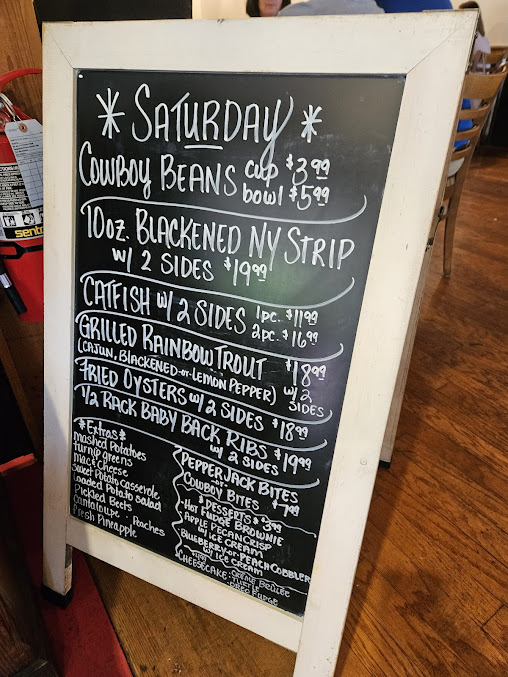 * SATURDAY *
COWBOY BEANS cup $3.99
bowl $5.99
10oz. BLACKENED NY STRIP
w/ 2 SIDES $19.99
CATFISH w/ 2 SIDES 1pc. $11.99
2pc. $16.99
GRILLED RAINBOW TROUT $18.99
(CAJUN, BLACKENED -or- LEMON PEPPER) w/ 2 SIDES
FRIED OYSTERS w/ 2 SIDES $18.99
1/2 RACK BABY BACK RIBS $19.99
w/ 2 SIDES
*Extras*
mashed Potatoes
turnip greens
mac & Cheese
Sweet Potato Casserole
Loaded Potato Salad
Pickled Beets
Cantaloupe . Peaches
Fresh Pineapple
PEPPER JACK BITES
-or-
COWBOY BITES $7.99
$ DESSERTS $ $3.99
HOT FUDGE BROWNIE
APPLE PECAN CRISP
w/ ICE CREAM
BLUEBERRY -or- PEACH COBBLER
w/ ICE CREAM
CHEESECAKE: CREME BRULEE
TURTLE
FUDGE
sentry